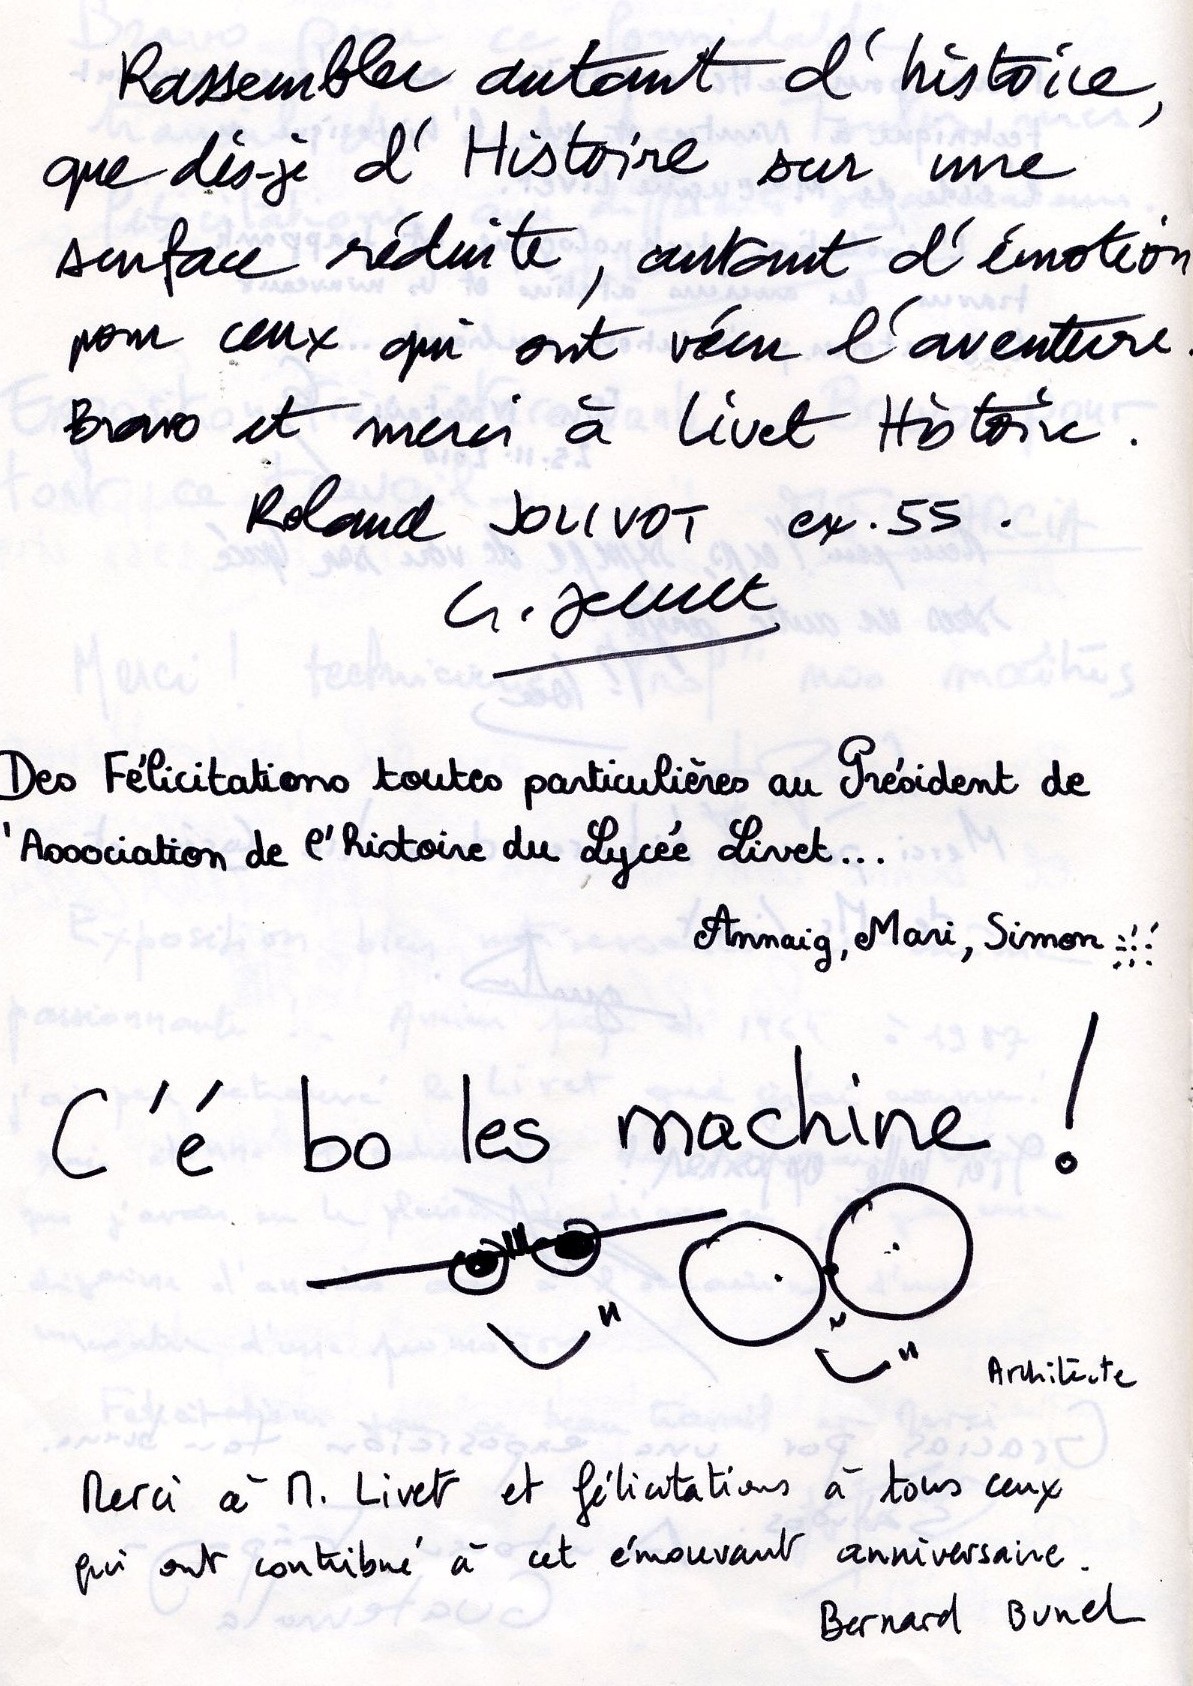 Rassembler autant d'histoire,
que dis-je d'Histoire sur une
surface réduite, autant d'émotion
pour ceux qui ont vécu l'aventure.
Bravo et merci à Livet Histoire.
Roland JOLIVOT ex. 55.
Des Félicitations toutes particulières au Président de
l'Association de l'histoire du Lycée Livet...
Annaig, Mari, Simon
C'é bo les machine !
Architecte
Merci à M. Livet et félicitations à tous ceux
qui ont contribué à cet émouvant anniversaire.
Bernard Bunel